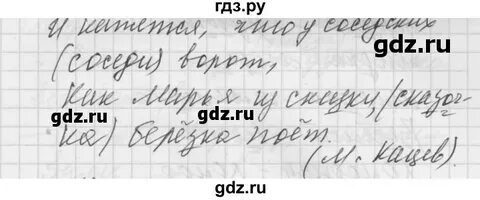 гдз.ру
И кажется, что у соседских
(соседи) ворот,
gdz.ru gdz.ru
Как Марья из сказки, (сказоч-
ка) берёзка поёт.
(М. Кацев).
gdz.ru gdz.ru